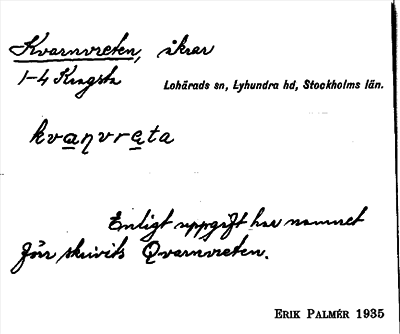 Kvarnvreten, åkrar
1-4 Kragsta
Lohärads sn, Lyhundra hd, Stockholms län.
kvaɳvreta
Enligt uppgift har namnet
förr skrivits Qvarnvreten.
ERIK PALMÉR 1935